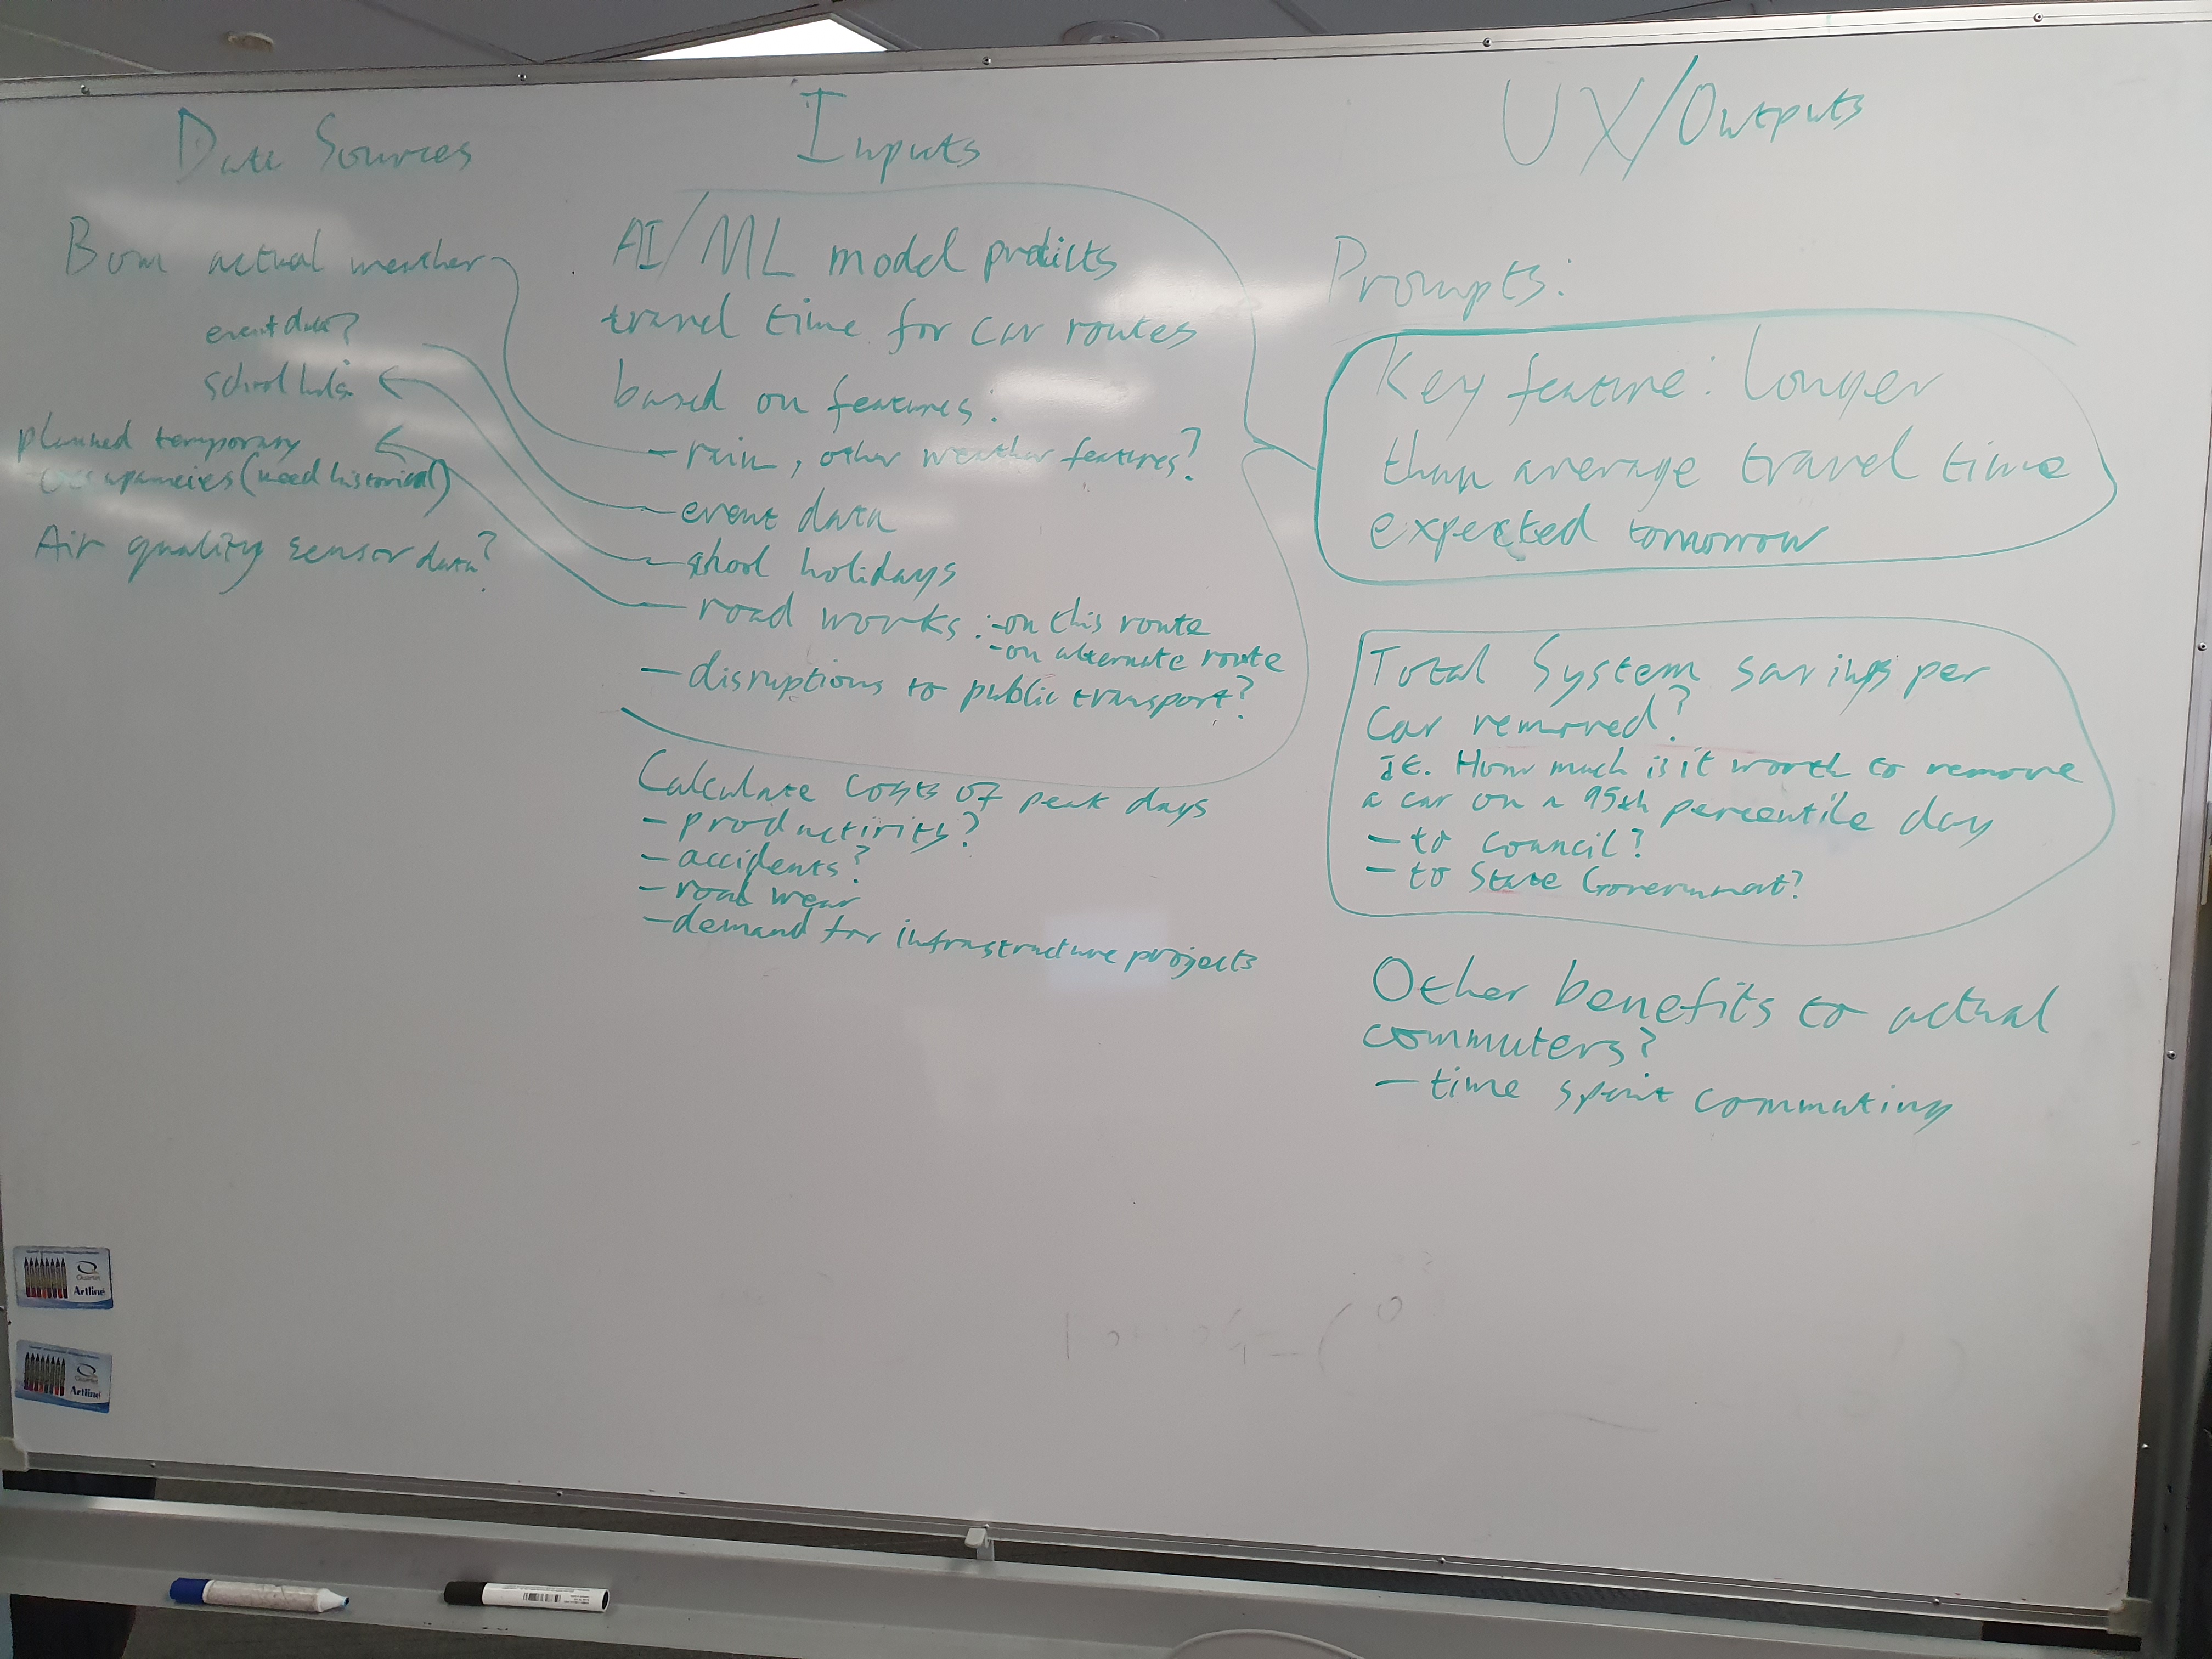 Data Sources
Bom actual weather
event data?
school hols.
planned temporary
occupancies (need historical)
Air quality sensor data?
Inputs
AI/ML model predicts
travel time for car routes
based on features:
- rain, other weather features?
- event data
- school holidays
- road works: - on this route
- on alternate route
- disruptions to public transport?
Calculate costs of peak days
- productivity?
- accidents?
- road wear
- demand for infrastructure projects
UX/Outputs
Prompts:
Key feature: Longer
than average travel time
expected tomorrow
Total System savings per
Car removed?
IE. How much is it worth to remove
a car on a 95th percentile day
- to Council?
- to State Government?
Other benefits to actual
commuters?
- time spent commuting
Quartet
Artline
Quartet
Artline